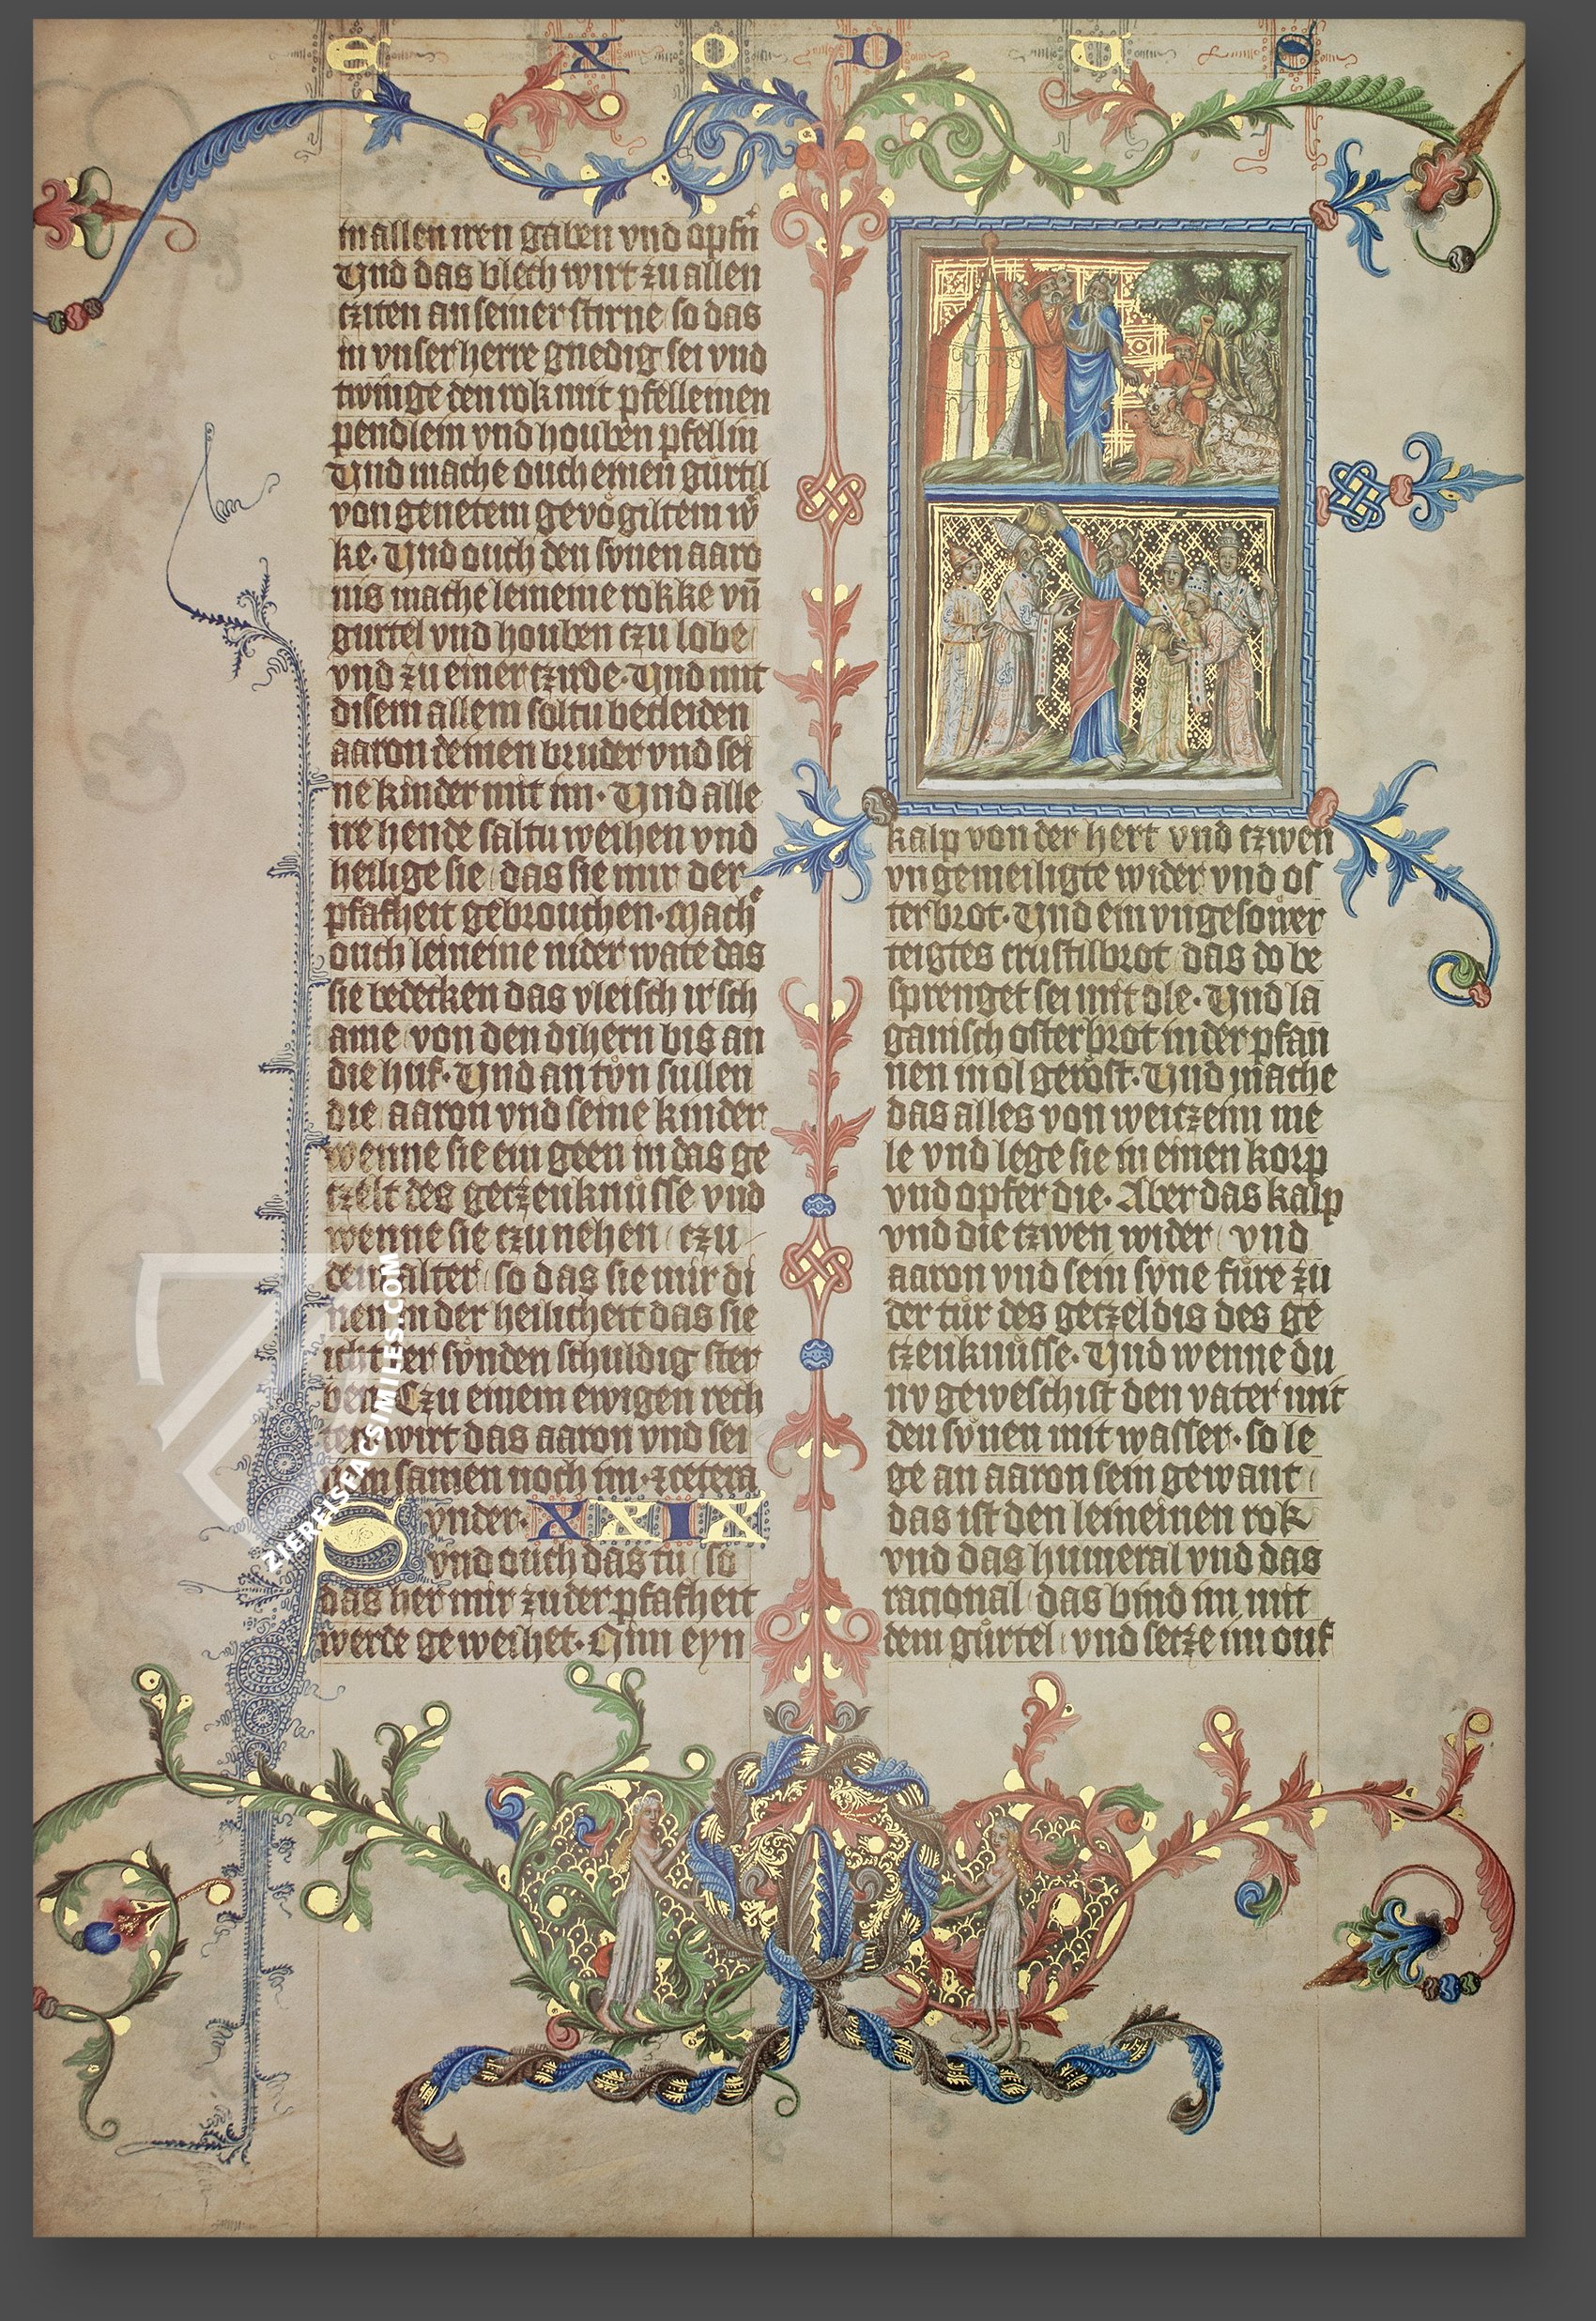 EXODUS
in allen iren gaben vnd opfn̄
Vnd das blech wirt zu allen
cziten an seiner stirne so das
in vnser herre gnedig sei vnd
twinge den rok mit pfelleinen
pendlein vnd houben pfellin
Vnd mache ouch einen gürtil
von genetem gevogiltem w̄
ke. Vnd ouch den sv̊nen aaro
nis mache leineine rokke vn̄
gurtel vnd houben czu lobe
vnd zu einer czirde. Vnd mit
disem allem soltu becleiden
aaron deinen bruder vnd sei
ne kinder mit im. Vnd alle
ire hende saltu weihen vnd
heilige sie das sie mir der
pfafheit gebrouchen. Machͤ
ouch leineine nider wate das
sie bedecken das vleisch ir sch
ame von den dihern bis an
die huf. Vnd an tv̊n sullen
die aaron vnd seine kinder
wenne sie ein geen in das ge
czelt des geczeuknüsse vnd
wenne sie czu nehen czu
dem alter so das sie mir di
nen in der heilicheit das sie
icht der sv̊nden schuldig ster
ben. Czu einem ewigen rech
ten wirt das aaron vnd sei
nem samen noch im. et cetera
Svnder. XXIX
vnd ouch das tu so
das her mir zu der pfafheit
werde geweihet. Nim eyn
kalp von der hert vnd czwen
vngemeiligte wider vnd os
terbrot. Vnd ein vngesower
teigtes crustilbrot das do be
sprenget sei mit ole. Vnd la
ganisch osterbrot in der pfan
nen in ol gerost. Vnd mache
das alles von weitzeim me
le vnd lege sie in einen korp
vnd opfer die. Aber das kalp
vnd die czwen wider vnd
aaron vnd sein syne füre zu
der tür des getzeldis des ge
tzeuknüsse. Vnd wenne du
nv geweschist den vater mit
den sv̊nen mit wasser. so le
ge an aaron sein gewant
das ist den leineinen rok
vnd das humeral vnd das
racional das bind im mit
dem gůrtel vnd setze im ouf
ZIEREISFACSIMILES.COM